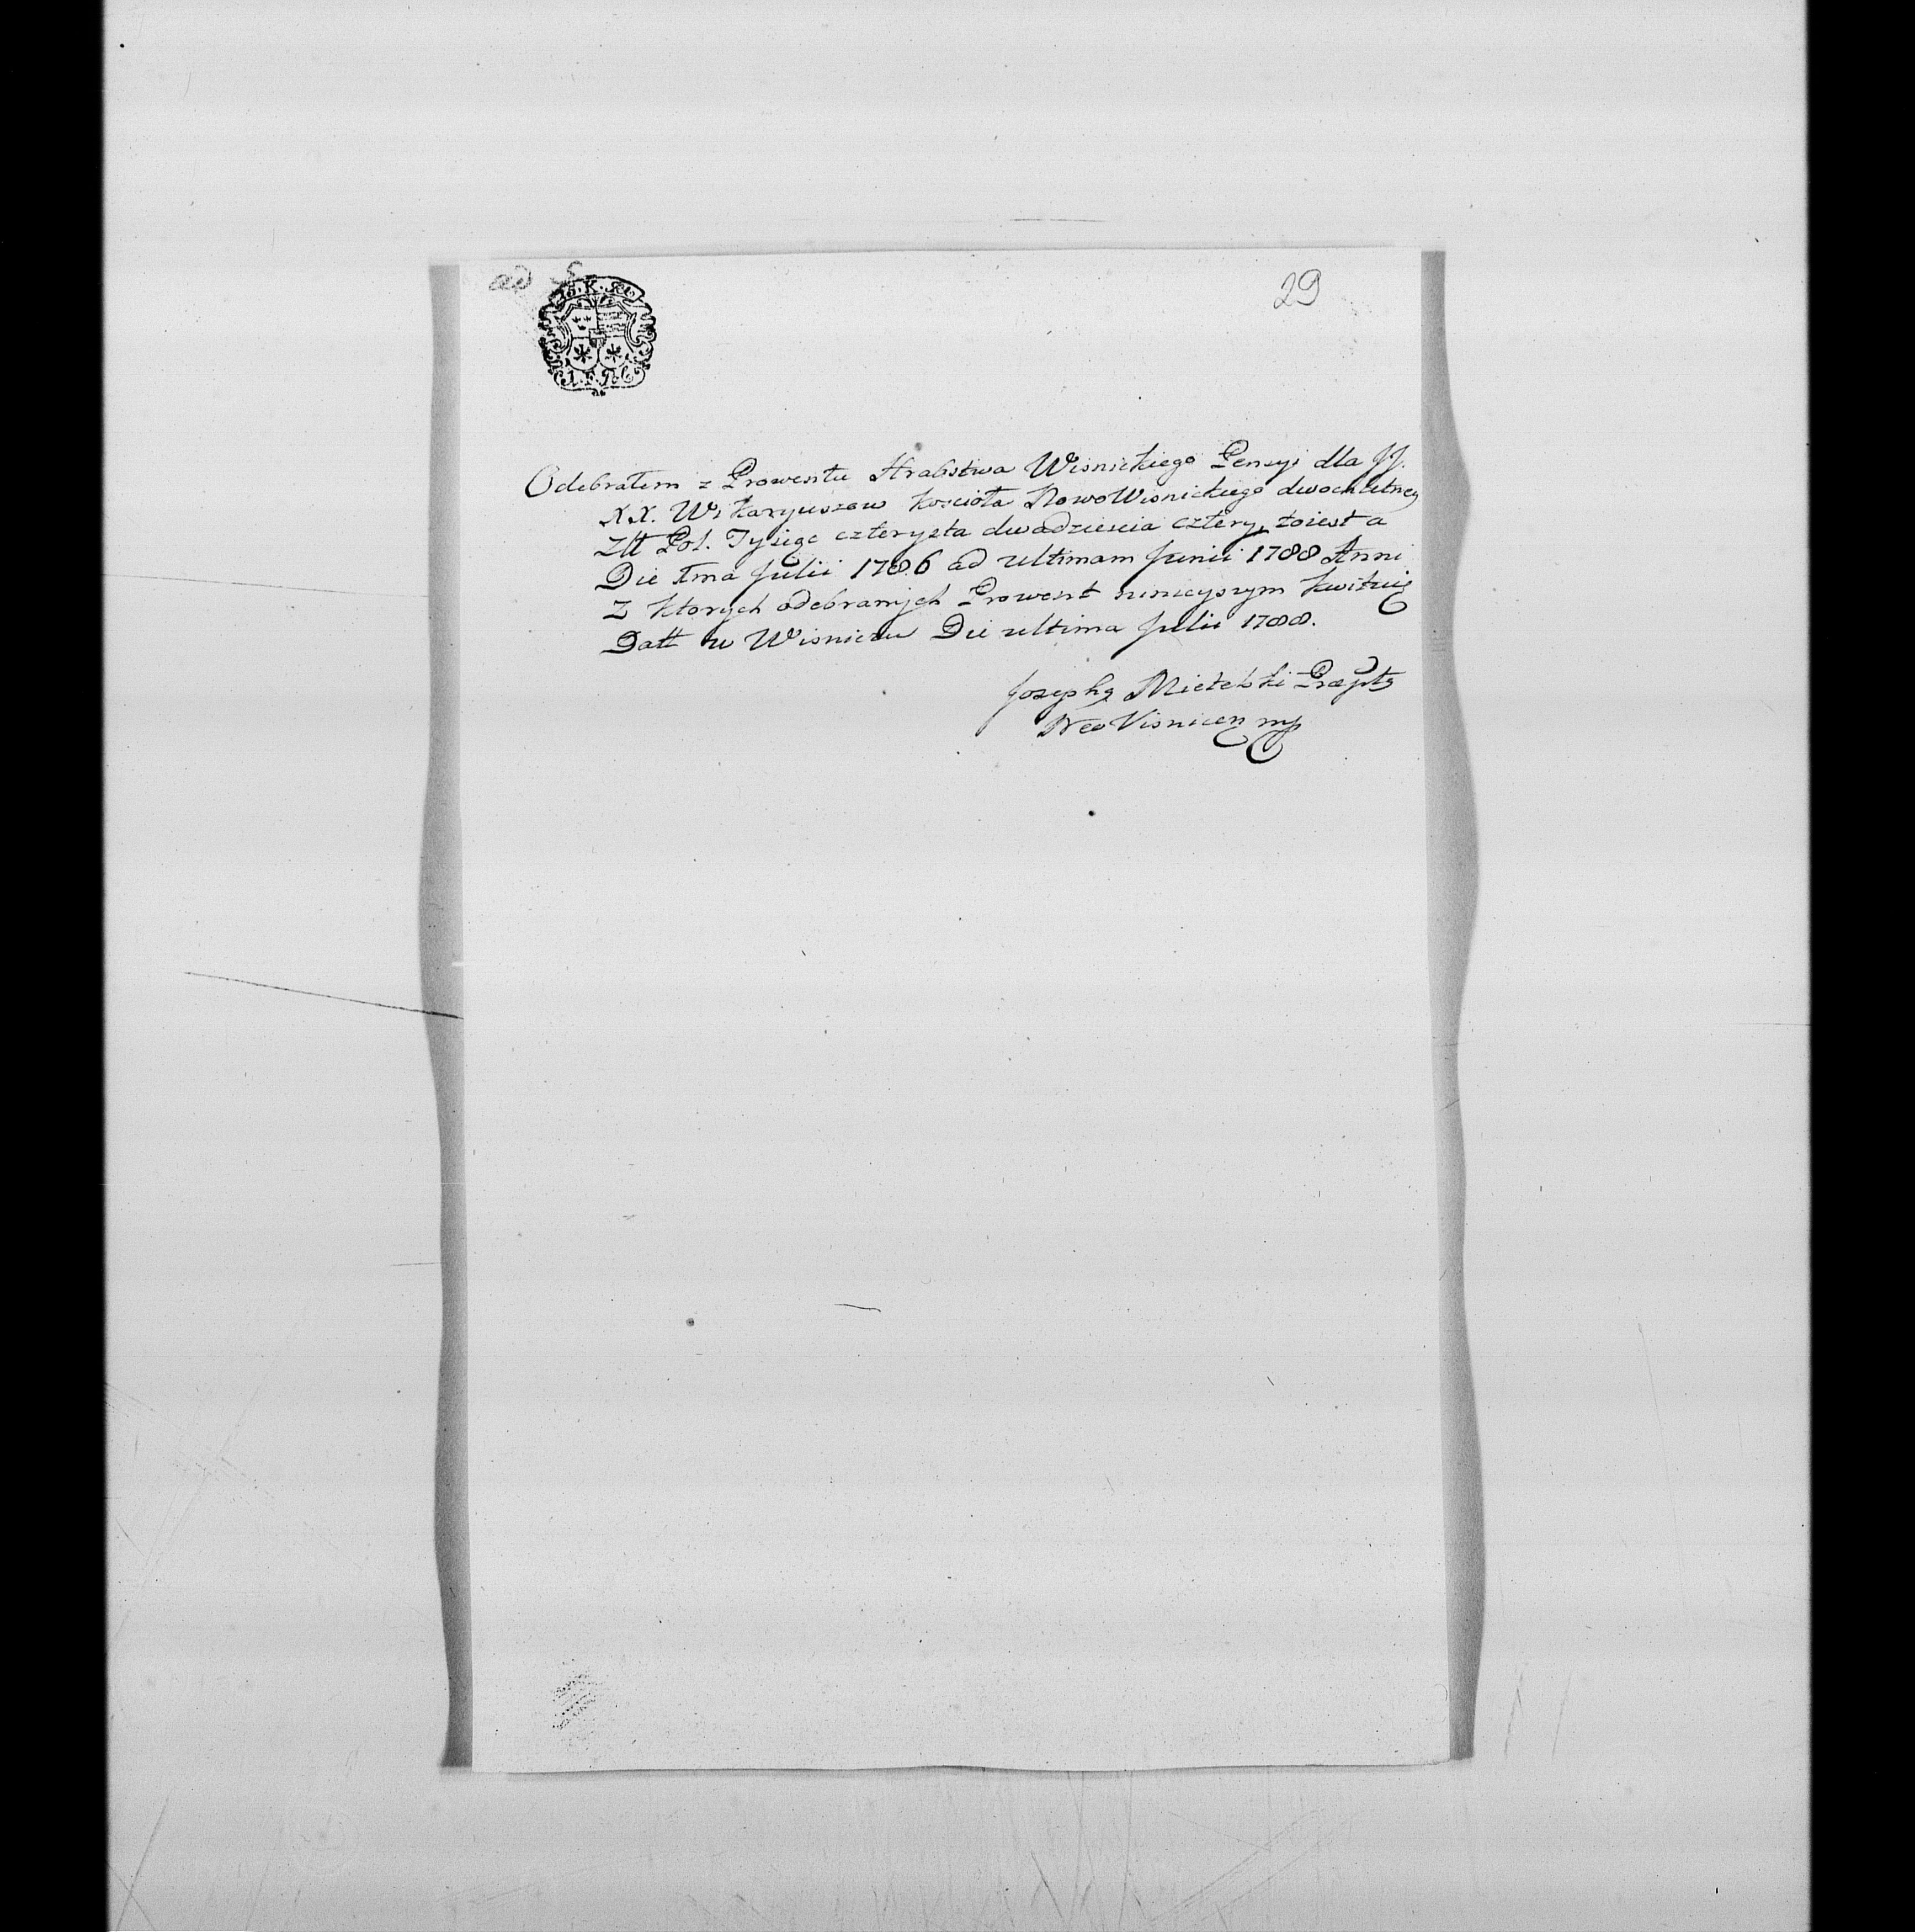 ad
29
Odebrałem z Prowentu Hrabstwa Wisnickiego Pensyi dla JJ.
XX. Wikaryuszow koscioła NowoWisnickiego dwochletney
Złł Pol. Tysiąc czterysta dwadziescia cztery, toiest a
Die 1ma Julii 1786 ad ultimam Junii 1788 Anni
z ktorych odebranych Prowent ninieyszym kwituię
Datt w Wisniczu Die ultima Julii 1788.
Josephg Præpts
NeoVisnicen mp